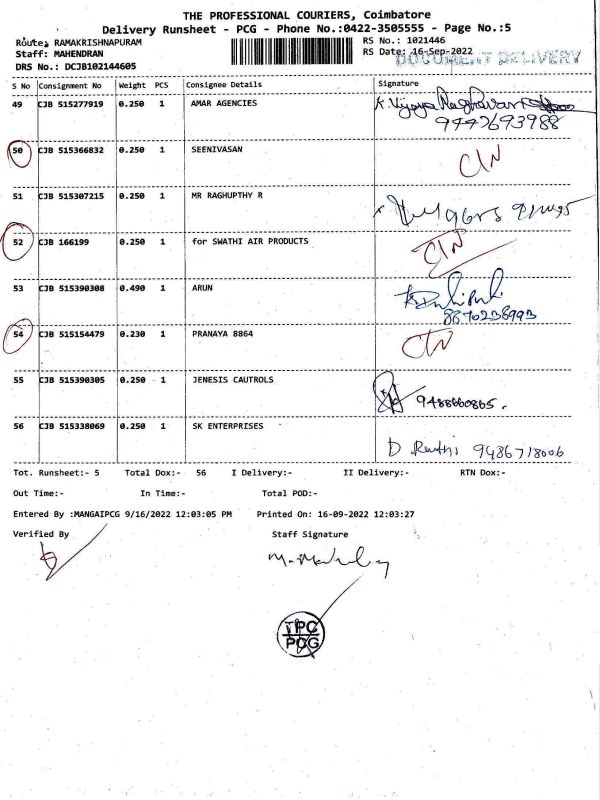 THE PROFESSIONAL COURIERS, Coimbatore
Delivery Runsheet - PCG - Phone No.:0422-3505555 - Page No.:5
Route: RAMAKRISHNAPURAM
RS No.: 1021446
Staff: MAHENDRAN
RS Date: 16-Sep-2022
DOCUMENT DELIVERY
DRS No.: DCJB102144605
S No Consignment No Weight PCS Consignee Details Signature
49 CJB 515277919 0.250 1 AMAR AGENCIES K. Vijaya Raghavan
9442693988
50 CJB 515366832 0.250 1 SEENIVASAN
51 CJB 515307215 0.250 1 MR RAGHUPTHY R
52 CJB 166199 0.250 1 for SWATHI AIR PRODUCTS
53 CJB 515390308 0.490 1 ARUN
8870238993
54 CJB 515154479 0.230 1 PRANAYA 8864
55 CJB 515390305 0.250 1 JENESIS CAUTROLS
9488660865.
56 CJB 515338069 0.250 1 SK ENTERPRISES
9486718006
Tot. Runsheet:- 5 Total Dox:- 56 I Delivery:- II Delivery:- RTN Dox:-
Out Time:- In Time:- Total POD:-
Entered By :MANGAIPCG 9/16/2022 12:03:05 PM Printed On: 16-09-2022 12:03:27
Verified By Staff Signature
TPC
PCG